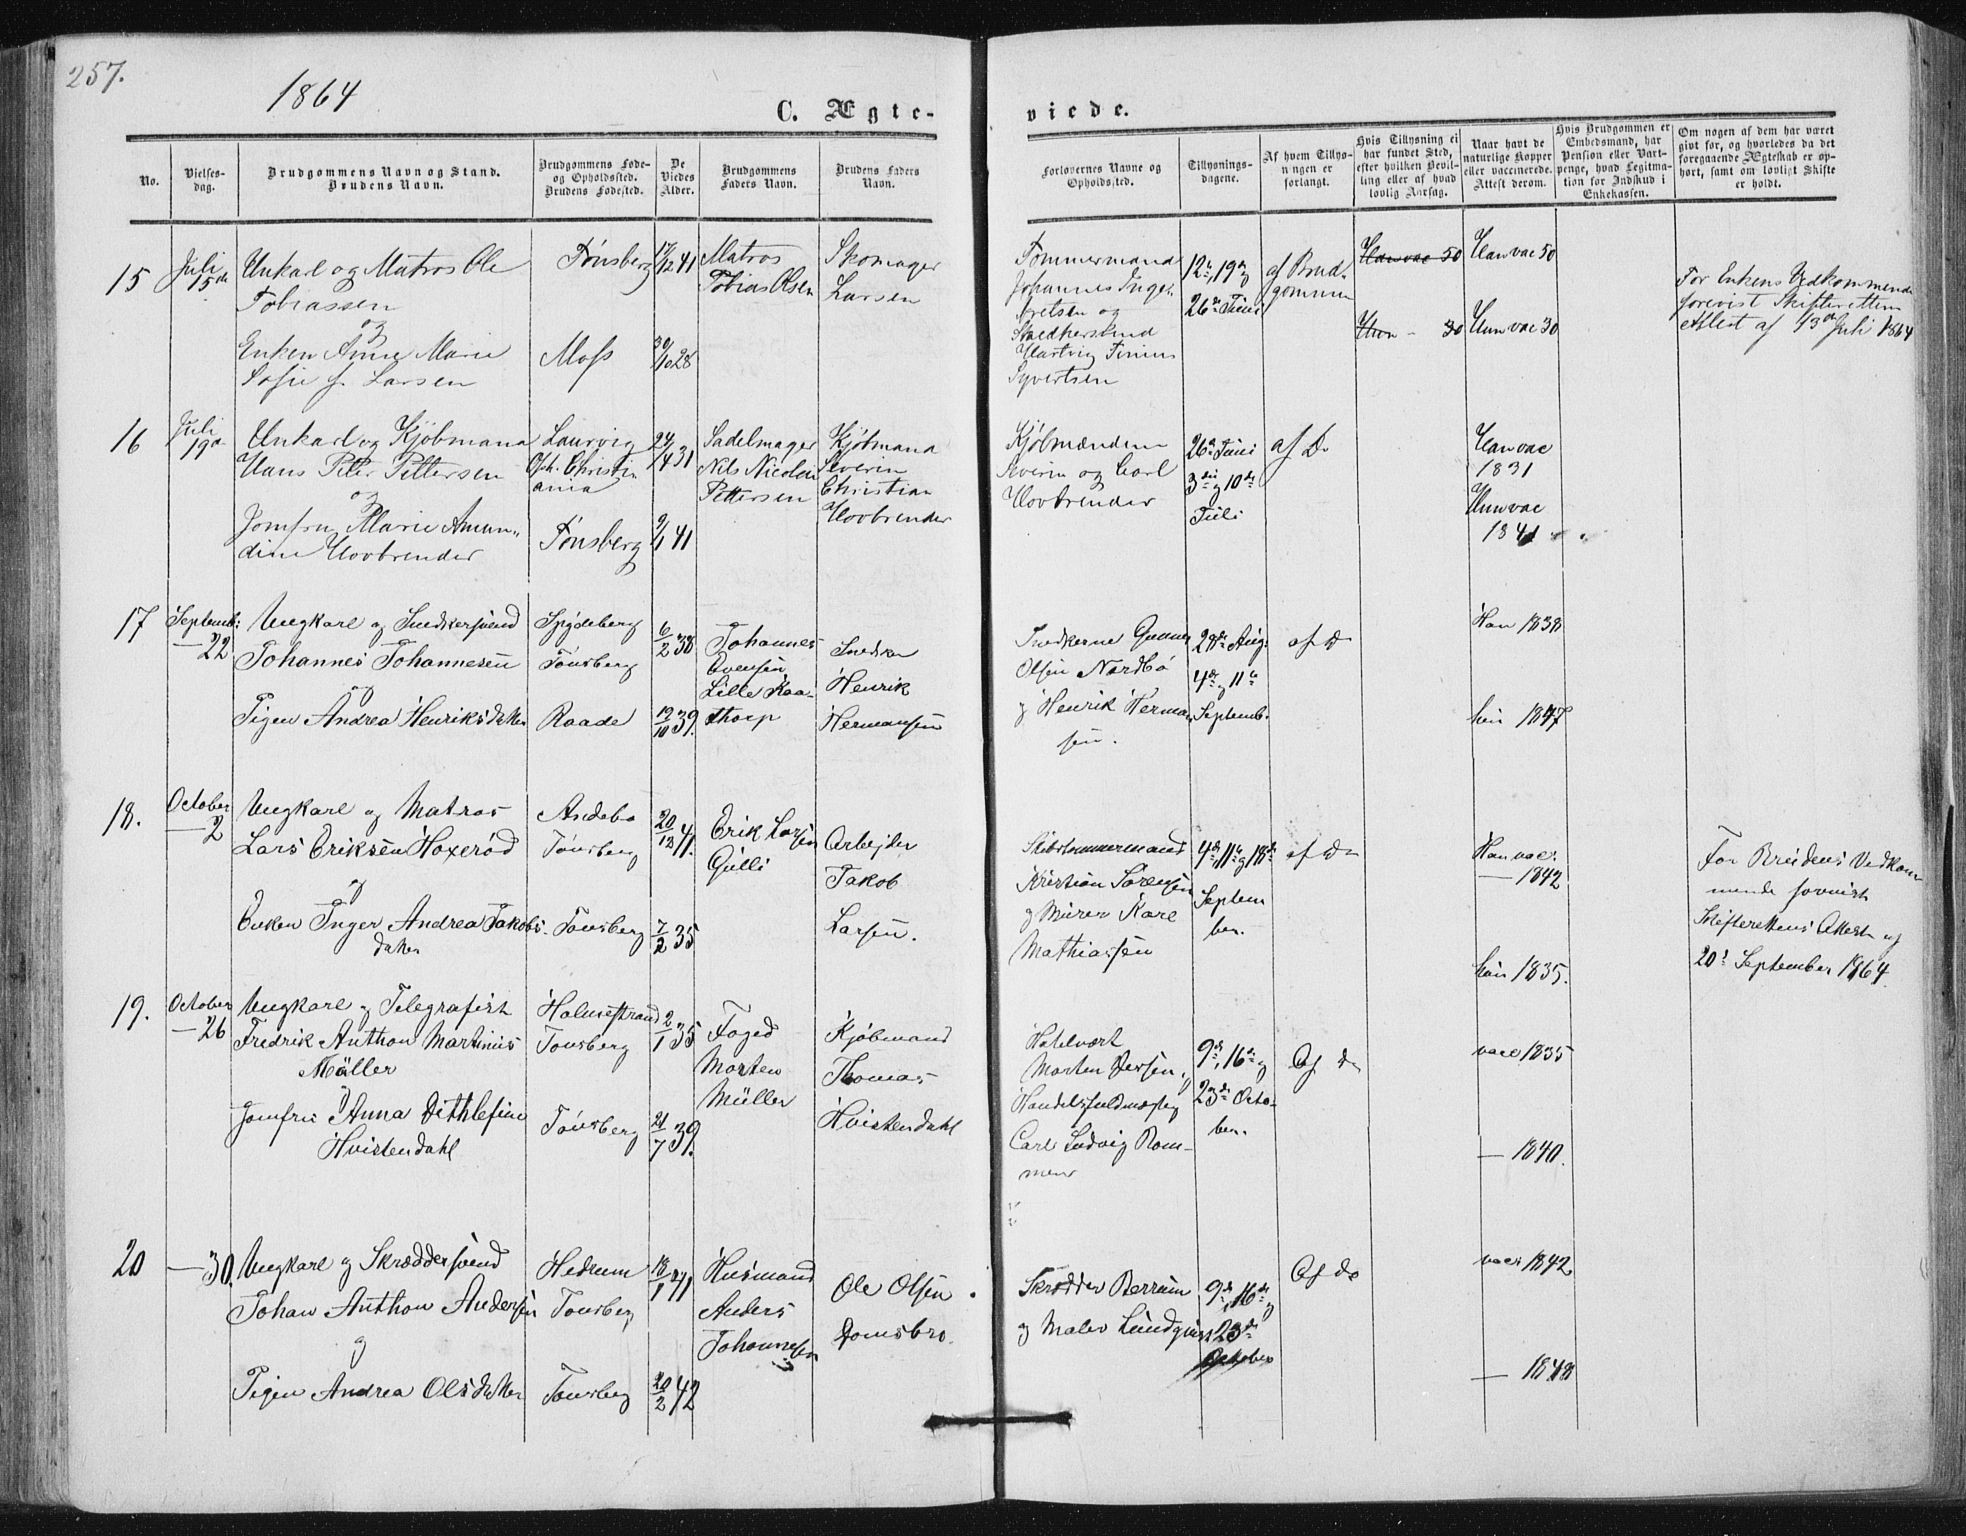 257.
1864
C. Ægte-
viede.
No.
Vielses-
dag.
Brudgommens Navn og Stand.
Brudens Navn.
Brudgommens Føde-
og Opholdssted.
Brudens Fødested.
De
Viedes
Alder.
Brudgommens
Faders Navn.
Brudens Faders
Navn.
Forlovernes Navne og
Opholdssted.
Tillysnings-
dagene.
Af hvem Tillys-
ningen er
forlangt.
Hvis Tillysning ei
har fundet Sted,
efter hvilken Bevil-
ling eller af hvad
lovlig Aarsag.
Naar havt de
naturlige Kopper
eller vaccinerede.
Attest derom.
Hvis Brudgommen er
Embedsmand, har
Pension eller Vart-
penge, hvad Legitma-
tion for Indskud i
Enkekassen.
Om nogen af dem har været
gift før, og hvorledes da det
foregaaende Ægteskab er op-
hørt, samt om lovligt Skifte
er holdt.
15
Juli
15de
Unkarl og Matros Ole
Tobiassen
og
Enken Anne Marie
Sofie f. Larsen
Tønsberg
Moss
17/12 41
30/10 28
Matros
Tobias Olsen
Skomager
Larsen
Tømmermand
Johannes Inge-
bretsen og
Snedkersvend
Hartvig
Syvertsen
12te, 19de og
26de Juni
af Brud-
gommen
Han vac 50
Hun - 30
Han vac 50
Hun vac 30
For Enkens Vedkommende
forevist Skifterettens
Attest af 13de Juli 1864
16
Juli
19de
Unkarl og Kjøbmand
Hans Peter Pettersen
og
Jomfru Marie Aman-
dine Hovbrender
Laurvig
Oph. Christi-
ania
Tønsberg
24/4 31
9/1 41
Sadelmager
Nils Nicolai
Pettersen
Kjøbmand
Severin
Christian
Hovbrender
Kjøbmændene
Severin og Carl
Hovbrender
26de Juni
3die og 10de
Juli
af Do
Han vac
1831
Hun vac
1841
17
Septemb:
— 22
Ungkarl og Snedkersvend
Johannes Johannesen
og
Pigen Andrea Henriksdatter
Spydeberg
Tønsberg
Raade
6/2 38
19/10 39.
Johannes
Evensen
Lille Kaa-
thorp
Snedker
Henrik
Hermansen
Snedkerne Gunner
Olsen Nordbø
og Henrik Herman-
sen.
28de Aug.
4de og 11te
Septemb.
af do
Han 1838
hun 1847
18.
October
— 2
Ungkarl og Matros
Lars Eriksen Hoxerød
og
Enken Inger Andrea Jakobs-
datter
Andebo
Tønsberg
Tønsberg
20/12 41.
7/2 35
Erik Larsen
Gulli
Arbejder
Jakob
Larsen.
Skibstømmermand
Kristian Sørensen
og Murer Karl
Mathiassen
4de, 11te og 18de
Septem
ber.
af do
Han vac.
— 1842
hun 1835.
For Brudens Vedkom-
mende forevist
Skifterettens Attest af
20de September 1864.
19.
October
— 26
Ungkarl og Telegrafist
Fredrik Anthon Martinius
Müller
og
Jomfru Anna Dithlefine
Hvistendahl
Holmestrand
Tønsberg
Tønsberg
2/1 35
21/7 39.
Foged
Morten
Müller
Kjøbmand
Thomas
Hvistendahl
Hotelvært
Morten Jersen,
Handelsfuldmægtig
Carl Ludvig Rom-
mene
9de, 16de og
23de Octo-
ber.
Af do
vacc 1835
— 1840.
20
— 30.
Ungkarl og Skræddersvend
Johan Anthon Andersen
og
Pigen Andrea Olsdatter
Hedrum
Tønsberg
Tønsberg
18/1 41
20/2 42
Husmand
Anders
Johannesen
Ole Olsen
Gomsbro.
Skrædder Berrum
og Maler Lundqvist
9de, 16de og
23de
October
Af do
vacc 1842
— 1848